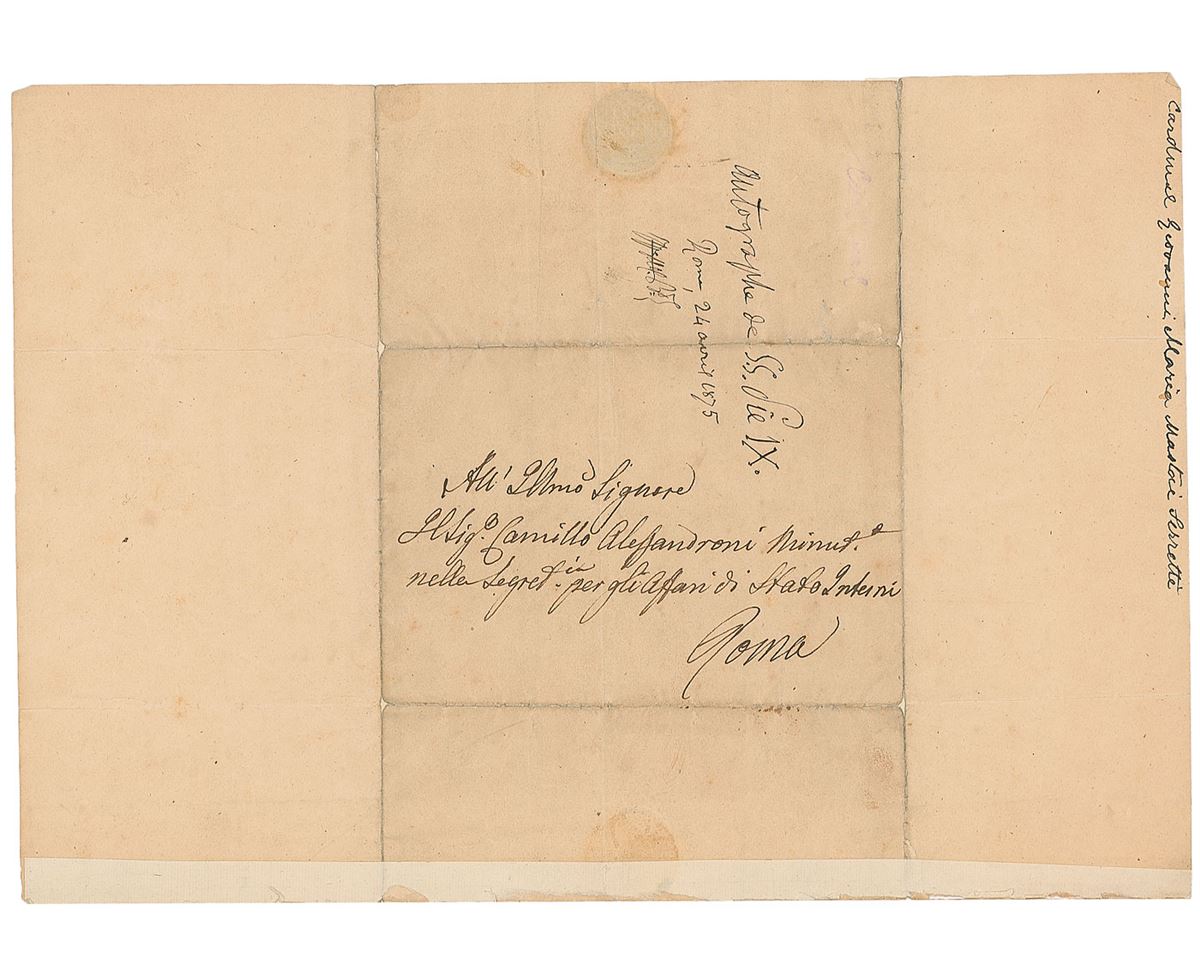 Autographe de S.S. Pie IX.
Rome, 24 avril 1875
All' Illmo Signore
Il Sig.o Camillo Alessandroni Minut.e
nella Segret.ia per gli Affari di Stato Interni
Roma
Cardinal Giovanni Maria Mastai Ferretti